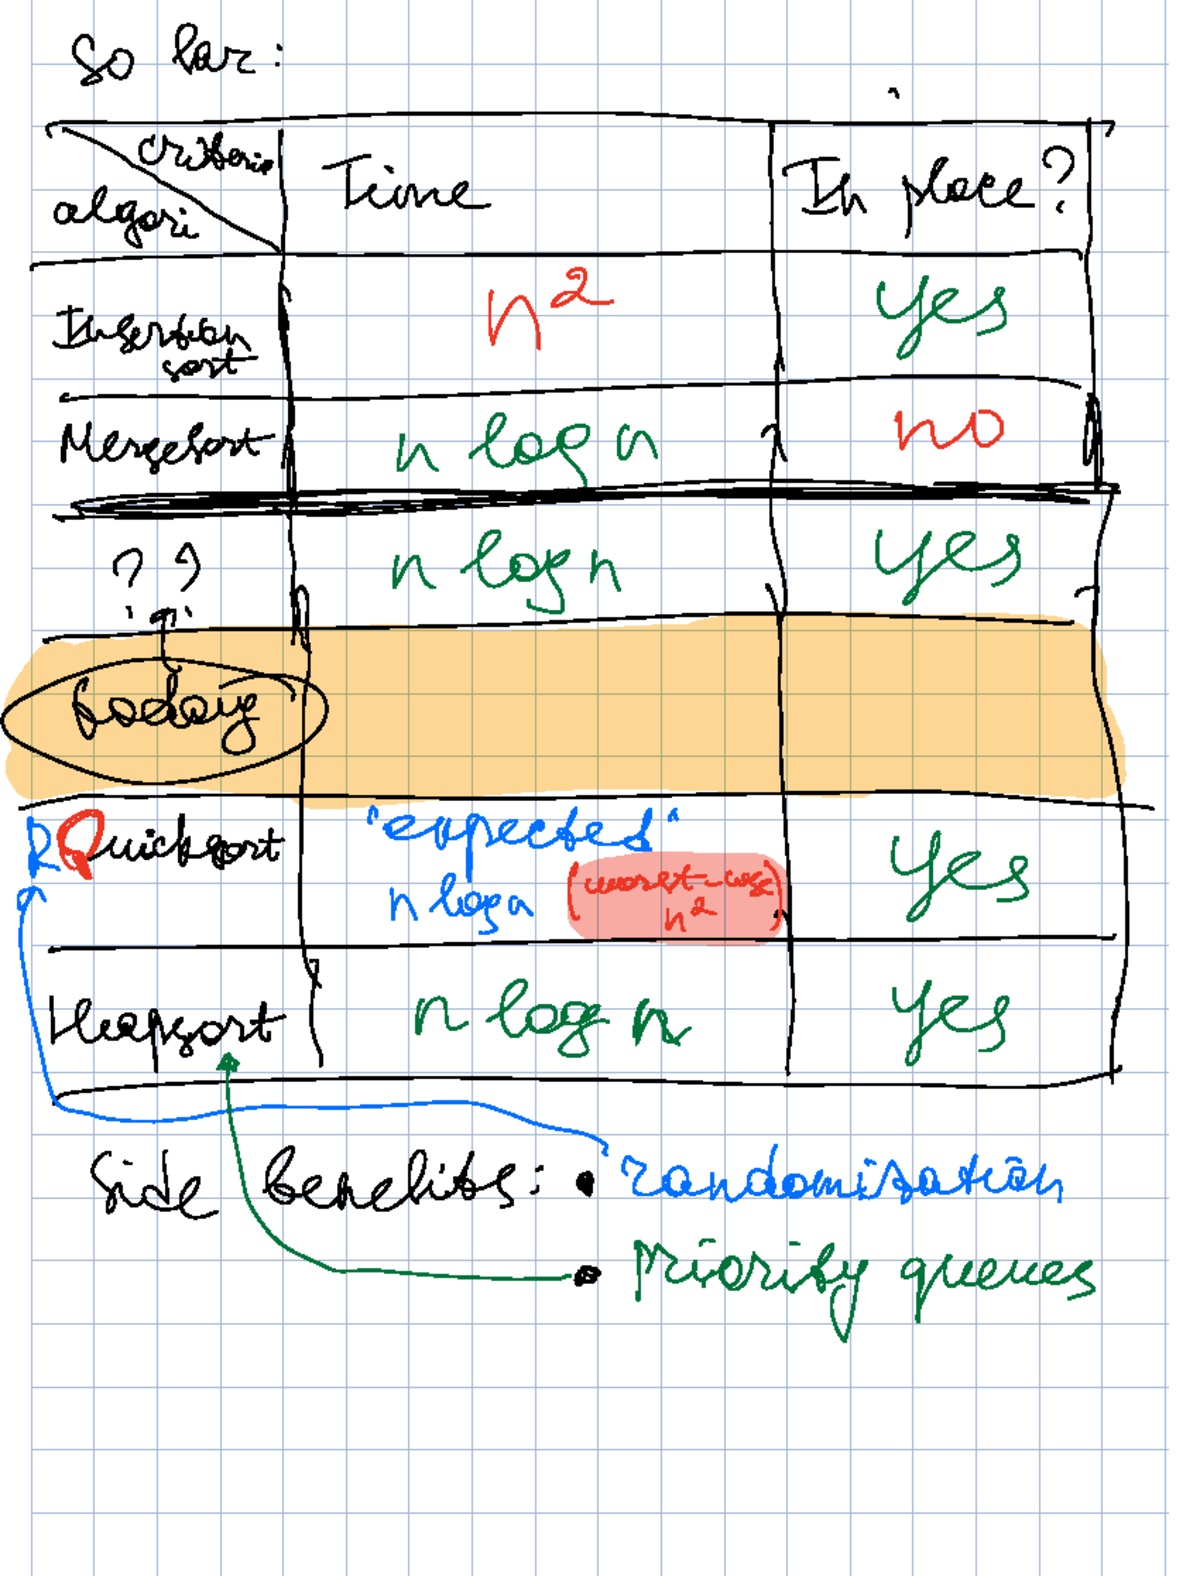 So far:
criteria
algori
Time
In place?
Insertion
sort
n²
yes
MergeSort
n log n
no
? ?
n log n
yes
today
RQuicksort
"expected"
n log n
(worst-case
n²)
yes
Heapsort
n log n
yes
Side benefits: • randomization
• Priority queues